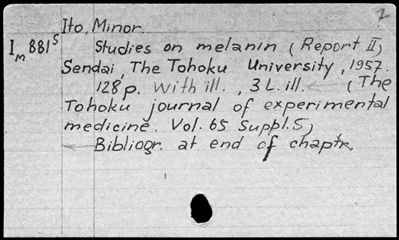 2
Ito, Minor.
Im 881s Studies on melanin (Report II)
Sendai, The Tohoku University, 1957.
128 p. with ill., 3 L. ill. (The
Tohoku journal of experimental
medicine. Vol. 65 Suppl. 5)
Bibliogr. at end of chaptr.